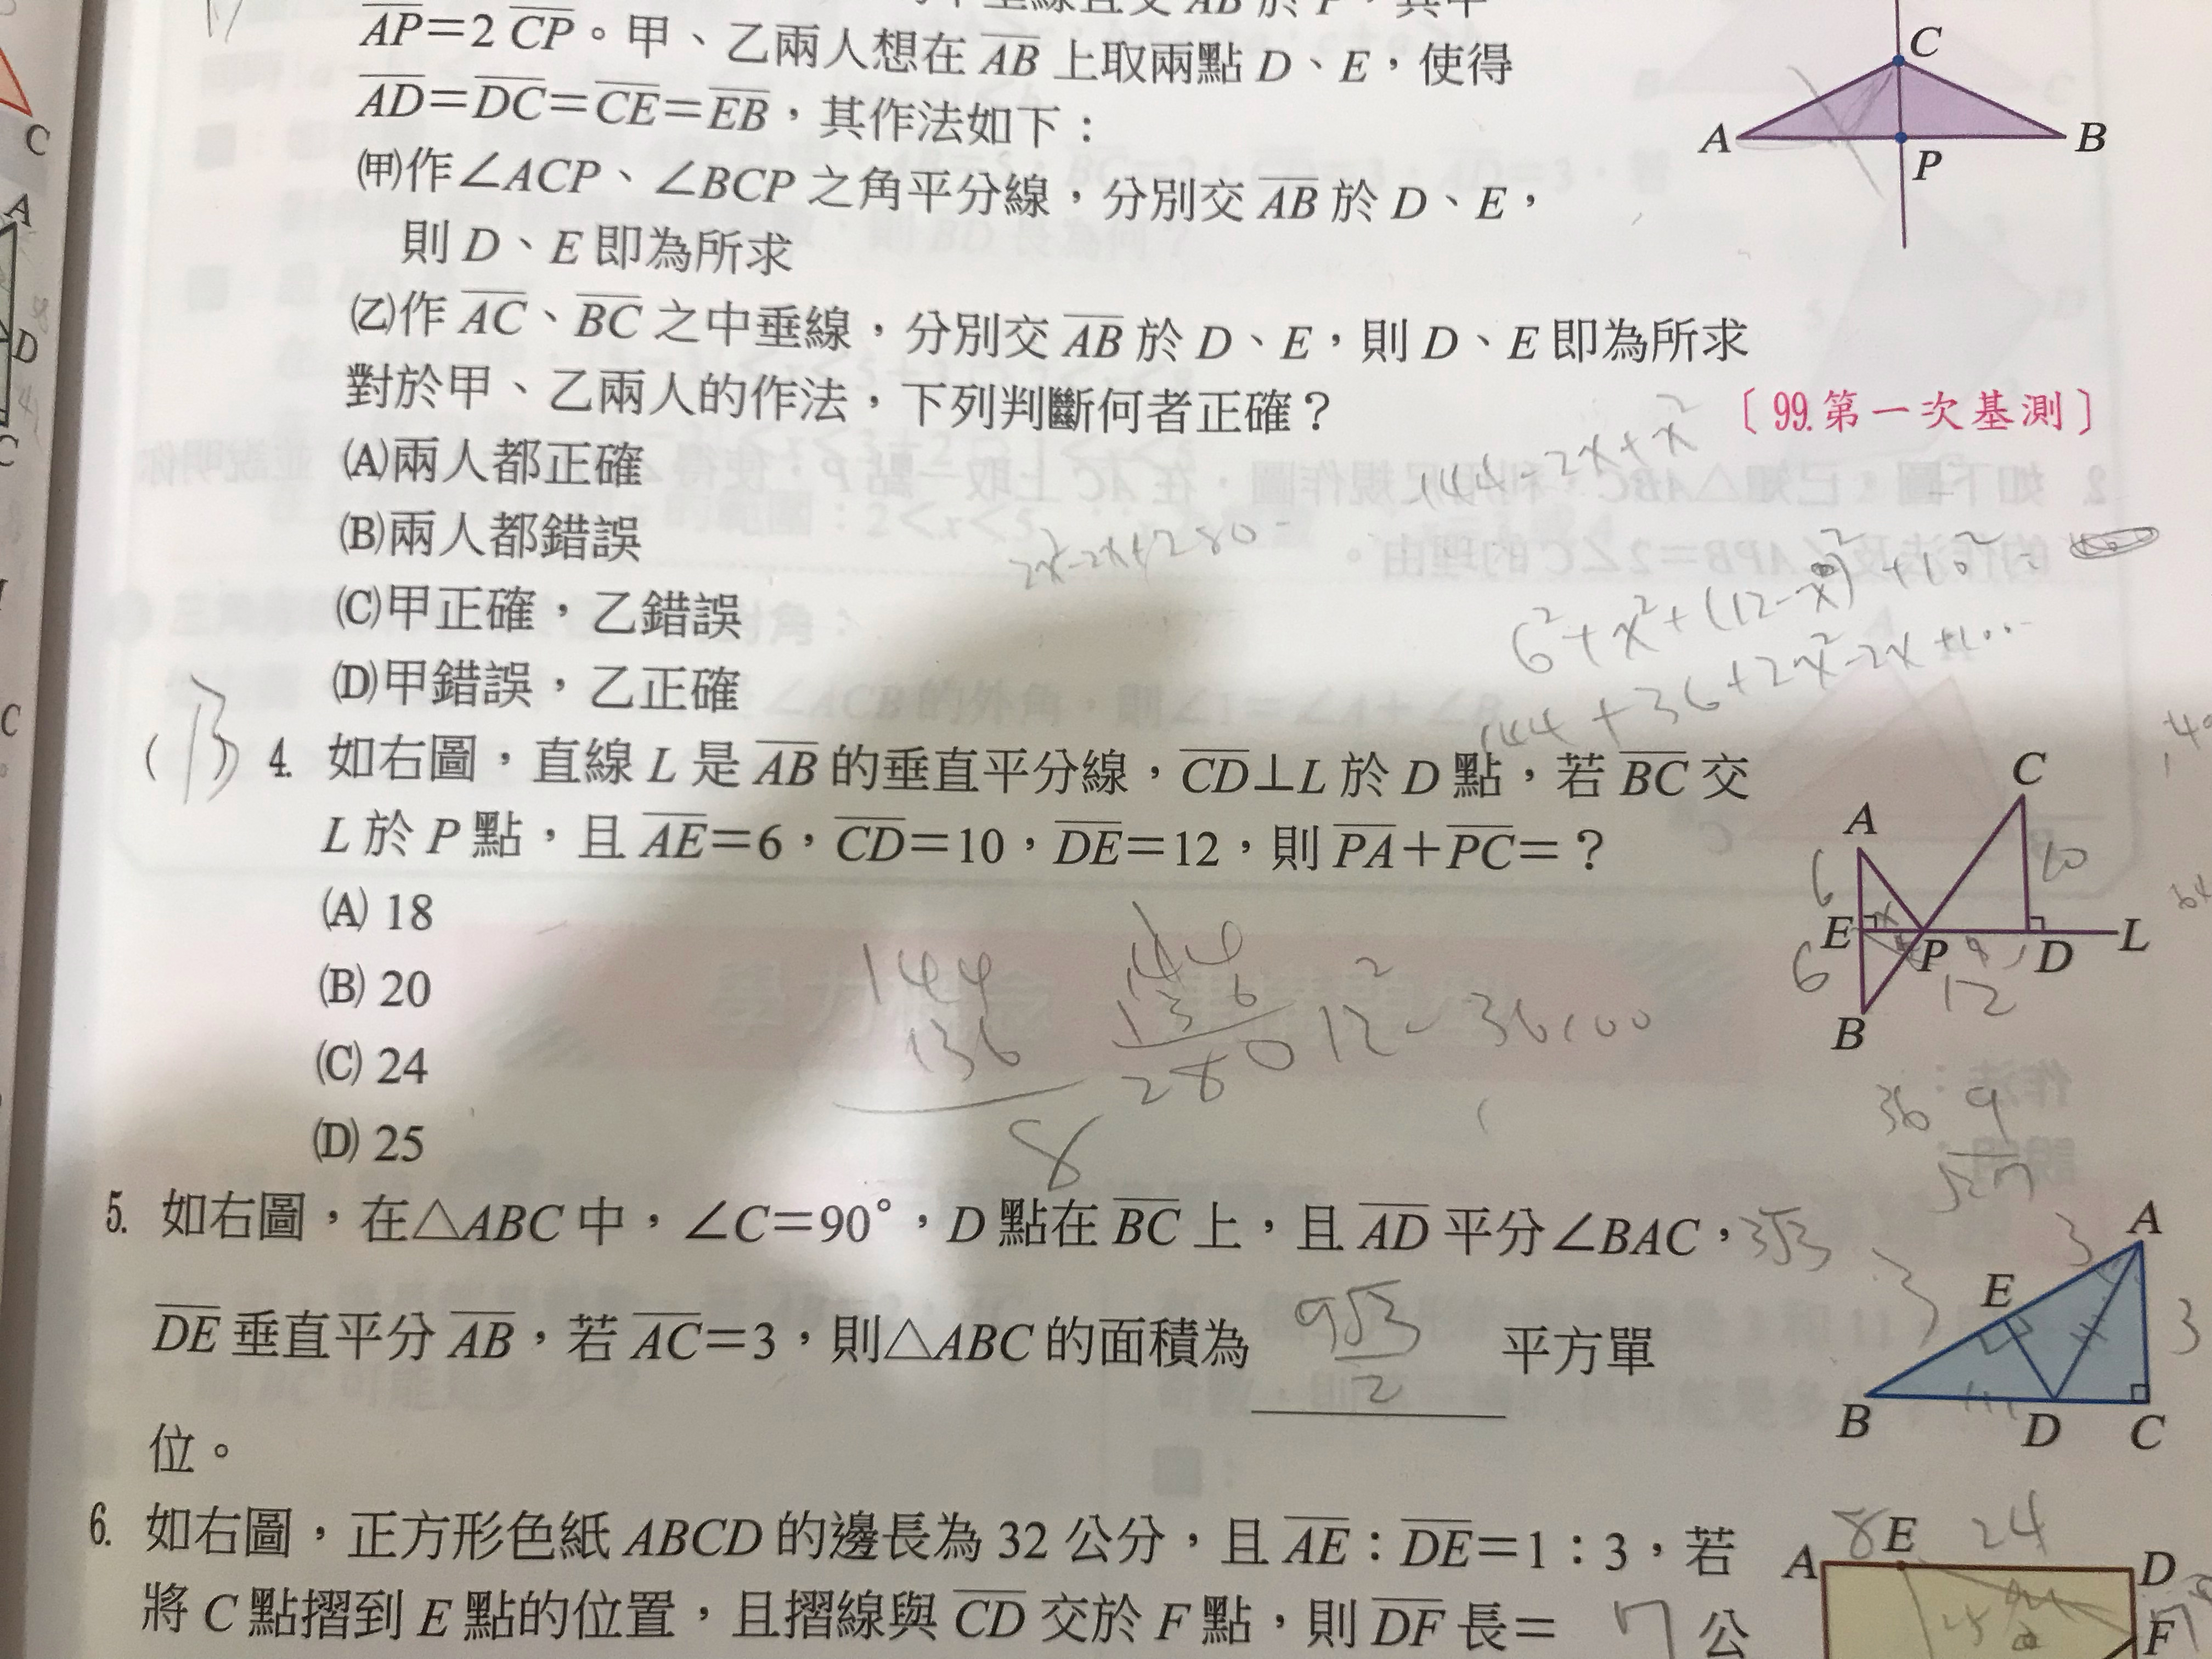 AP=2 CP。甲、乙兩人想在 AB 上取兩點 D、E,使得
AD=DC=CE=EB,其作法如下:
㈙作∠ACP、∠BCP 之角平分線,分別交 AB 於 D、E,
則 D、E 即為所求
㈚作 AC、BC 之中垂線,分別交 AB 於 D、E,則 D、E 即為所求
對於甲、乙兩人的作法,下列判斷何者正確?
〔99.第一次基測〕
(A)兩人都正確
(B)兩人都錯誤
(C)甲正確,乙錯誤
(D)甲錯誤,乙正確
C
A
P
B
144-2x+x²
2x²-2x+280=
6²+x²+(12-x)²+10²=
144+36+2x²-2x+100
(B) 4. 如右圖,直線 L 是 AB 的垂直平分線,CD⊥L 於 D 點,若 BC 交
L 於 P 點,且 AE=6,CD=10,DE=12,則 PA+PC=?
(A) 18
(B) 20
(C) 24
(D) 25
C
A
6
10
E
x
P
D
L
6
12
B
144
136
8
144
136
280
12²-36,100
36 9
5. 如右圖,在△ABC 中,∠C=90°,D 點在 BC 上,且 AD 平分∠BAC,
3√3
DE 垂直平分 AB,若 AC=3,則△ABC 的面積為 9√3/2 平方單
位。
A
3
E
3
3
B
D
C
6. 如右圖,正方形色紙 ABCD 的邊長為 32 公分,且 AE:DE=1:3,若
將 C 點摺到 E 點的位置,且摺線與 CD 交於 F 點,則 DF 長= 7 公
8
E
24
A
D
F
7